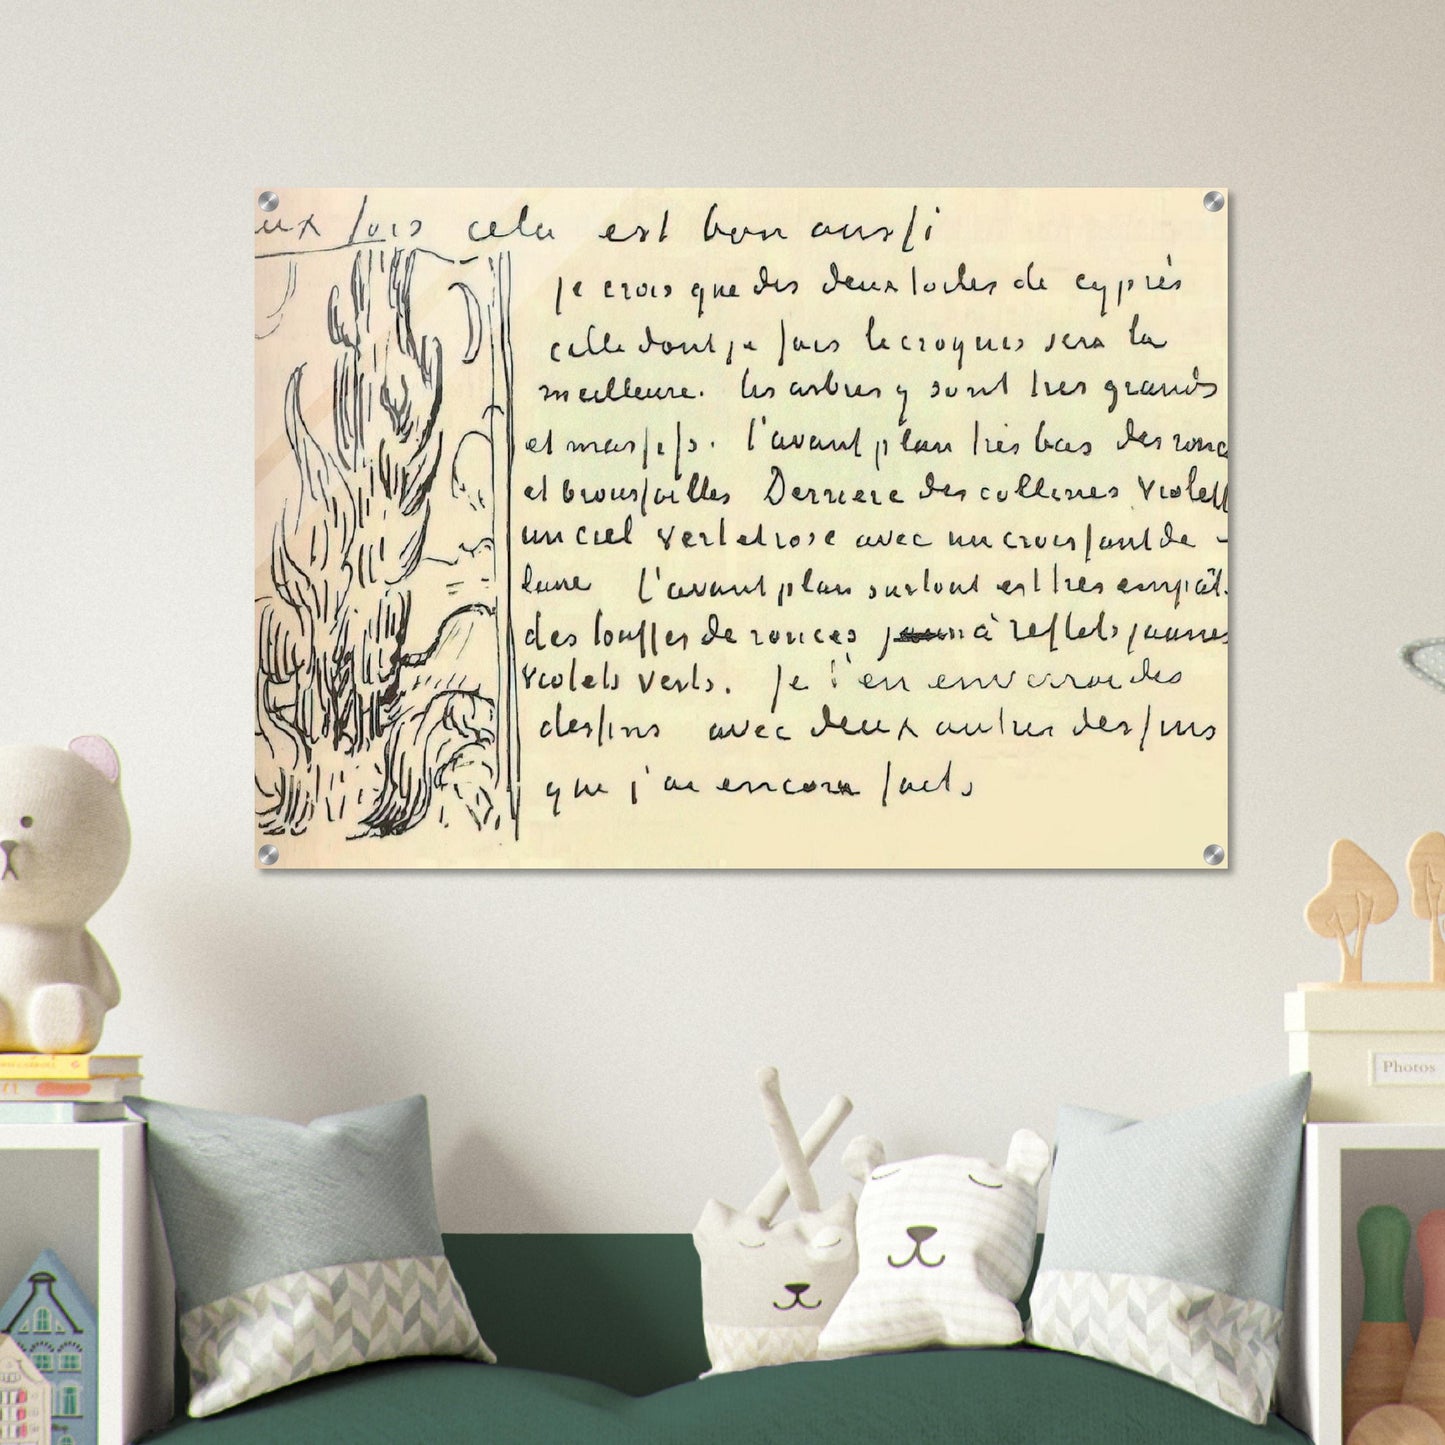 eux fois cela est bon aussi
je crois que des deux toiles de cyprès
celle dont je fais le croquis sera la
meilleure. les arbres y sont tres grands
et massifs. l'avant plan très bas des ronc
et broussailles Derriere des collines violett
un ciel vert et rose avec un croissant de
lune L'avant plan surtout est tres empât.
des touffes de ronces à reflets jaunes
violets verts. je t'en enverrai des
dessins avec deux autres dessins
que j'ai encore faits
Photos